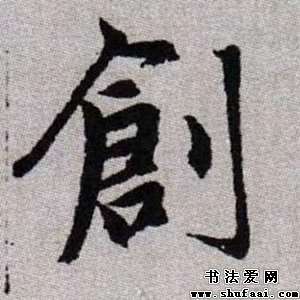 創
书法爱网
www.shufaai.com